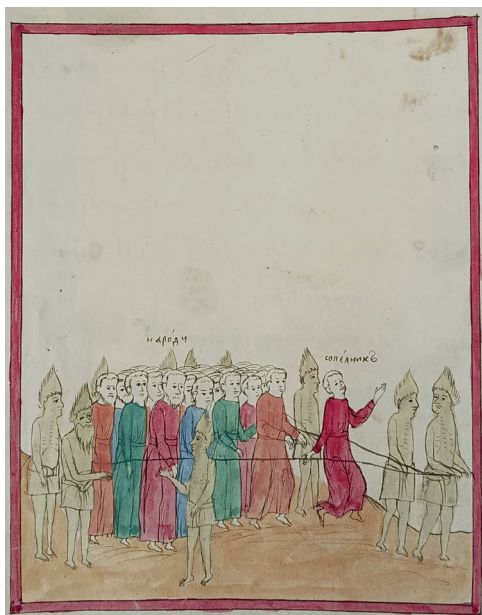 наро́ди
сопе́лникъ